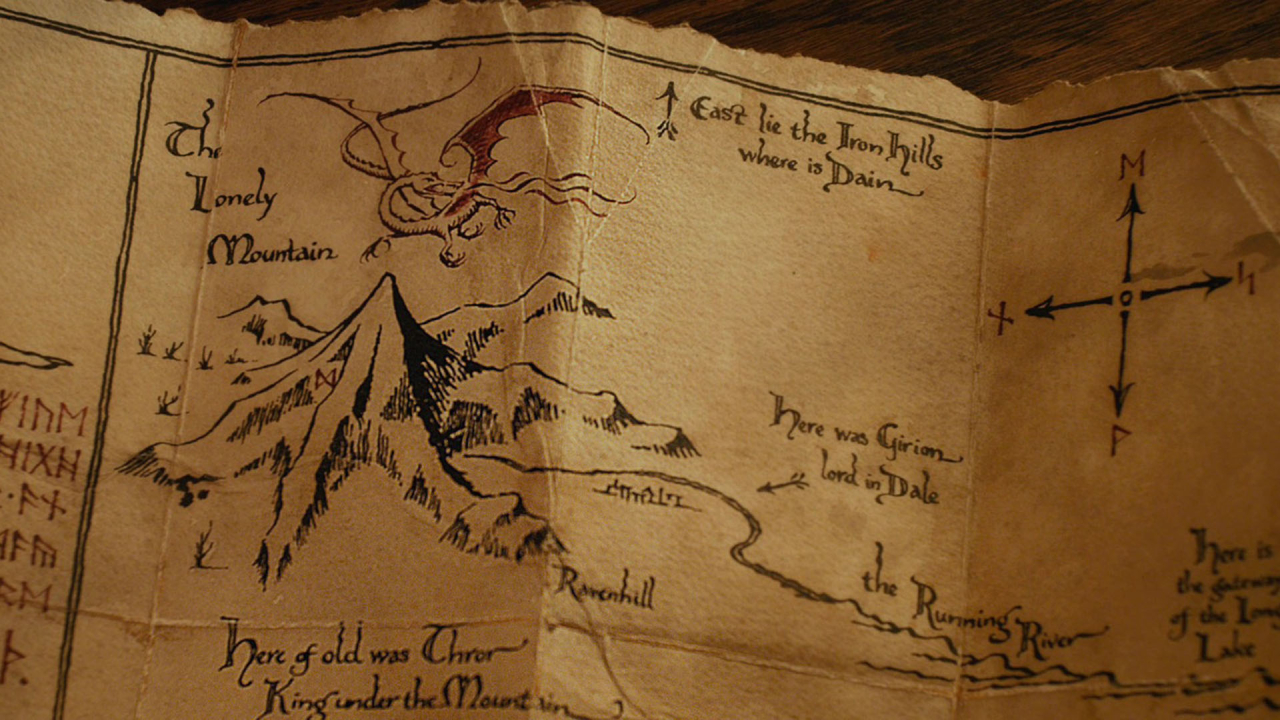 The
Lonely
Mountain
East lie the Iron Hills
where is Dain
ᛖ
ᚾ
ᛋ
ᚹ
ᛞ
ᚻᛁᚷᚻ
Here was Girion
lord in Dale
the Running River
Ravenhill
Here is
the gateway
of the Long
Lake
Here of old was Thror
King under the Mountain